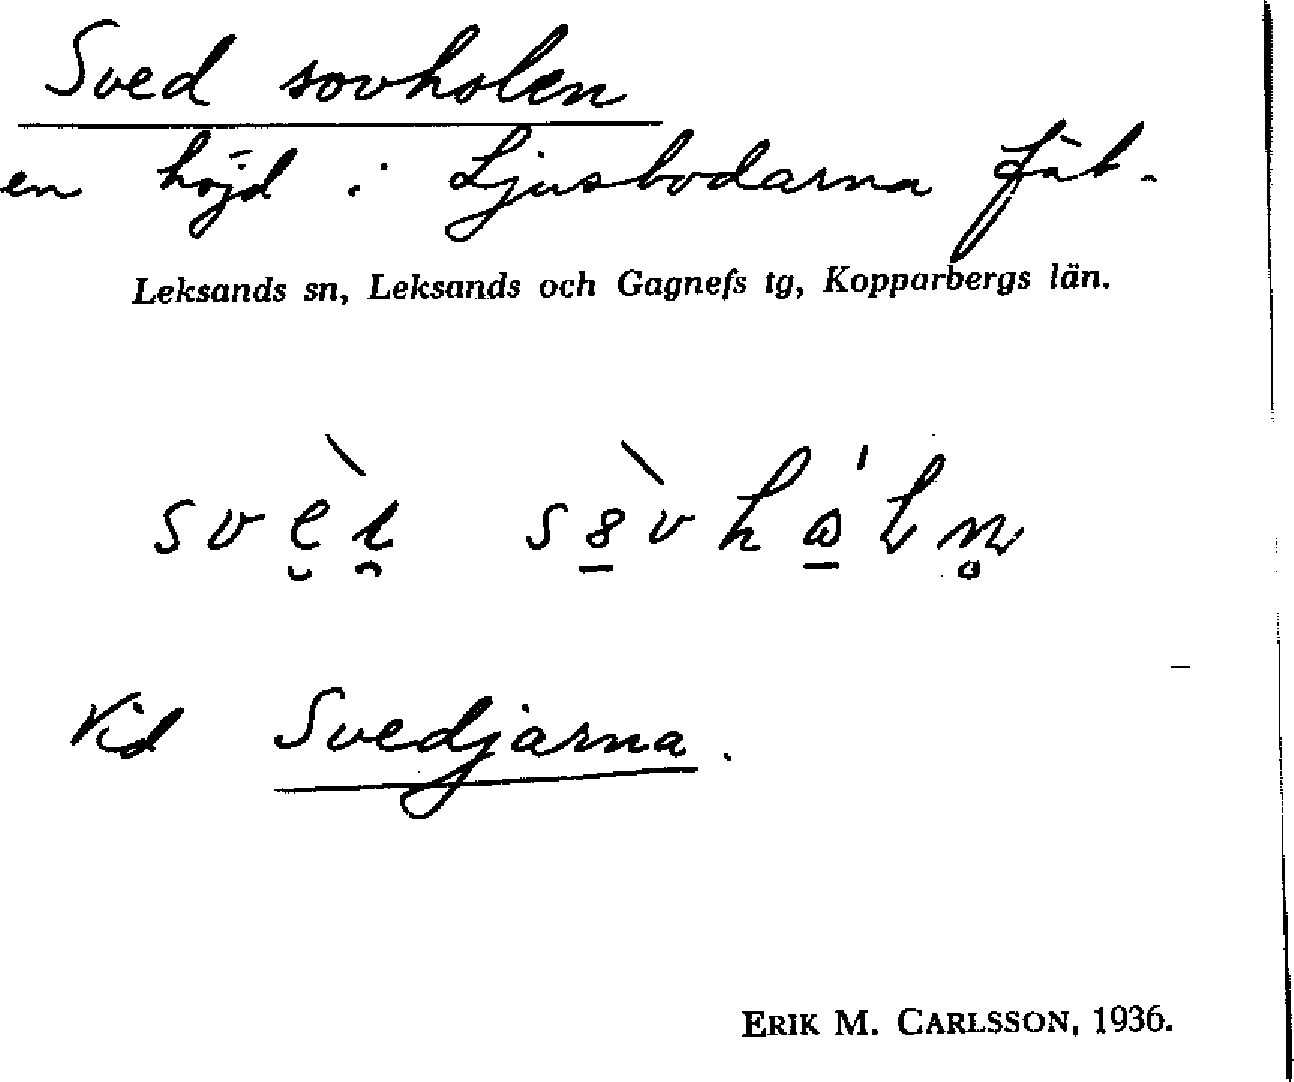 Sved sovholen
en höjd i Ljusbodarna fäb.
Leksands sn, Leksands och Gagnefs tg, Kopparbergs län.
Vid Svedjarna.
ERIK M. CARLSSON, 1936.